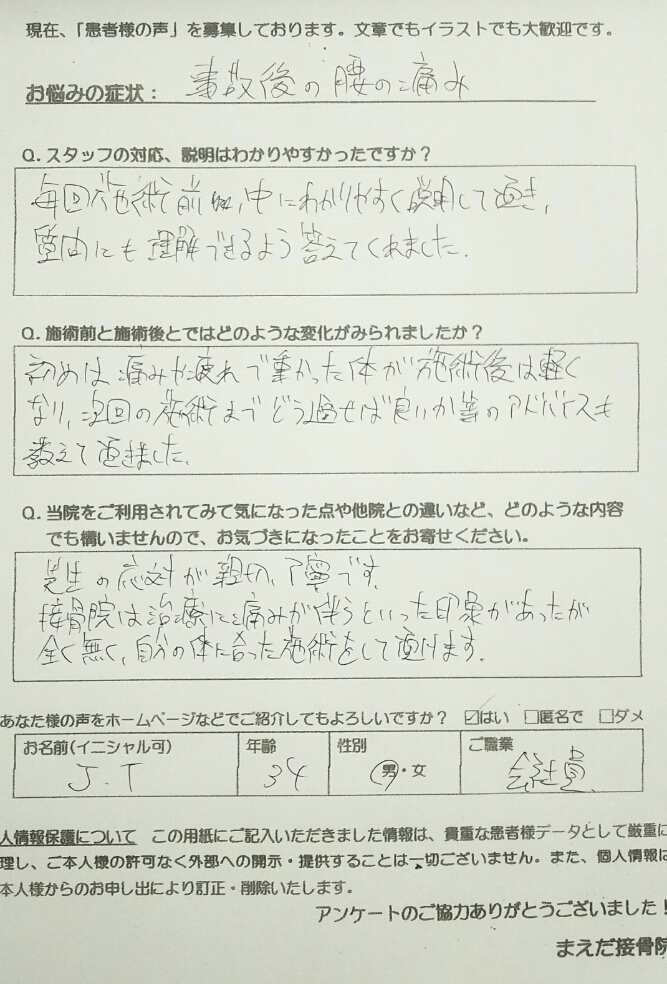 現在、「患者様の声」を募集しております。文章でもイラストでも大歓迎です。
お悩みの症状： 事故後の腰の痛み
Q. スタッフの対応、説明はわかりやすかったですか？
毎回施術前、中にわかりやすく説明して頂き、
質問にも理解できるよう答えてくれました。
Q. 施術前と施術後とではどのような変化がみられましたか？
初めは痛みや疲れで重かった体が施術後は軽く
なり、次回の施術までどう過せば良いか等のアドバイスも
教えて頂きました。
Q. 当院をご利用されてみて気になった点や他院との違いなど、どのような内容
でも構いませんので、お気づきになったことをお寄せください。
先生の応対が親切、丁寧です。
接骨院は治療に痛みが伴うといった印象があったが
全く無く、自分の体に合った施術をして頂けます。
あなた様の声をホームページなどでご紹介してもよろしいですか？ ☑はい □匿名で □ダメ
お名前(イニシャル可) 年齢 性別 ご職業
J.T 34 男・女 会社員
人情報保護について この用紙にご記入いただきました情報は、貴重な患者様データとして厳重に
理し、ご本人様の許可なく外部への開示・提供することは一切ございません。また、個人情報は
本人様からのお申し出により訂正・削除いたします。
アンケートのご協力ありがとうございました！
まえだ接骨院